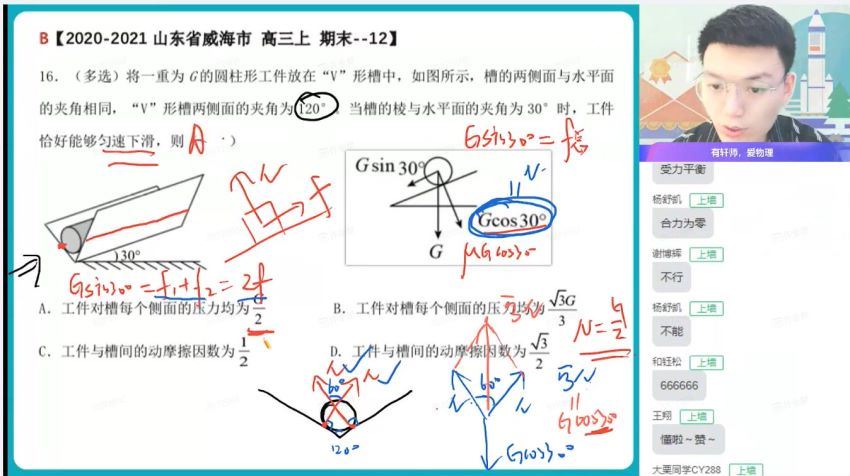 B【2020-2021 山东省威海市 高三上 期末--12】
16. （多选）将一重为 G的圆柱形工件放在“V”形槽中，如图所示，槽的两侧面与水平面
的夹角相同，“V”形槽两侧面的夹角为120°。当槽的棱与水平面的夹角为 30° 时，工件
恰好能够匀速下滑，则（ A ）
Gsin30° = f总
N
f
Gsin 30°
N
Gcos30°
G
μGcos30
30°
Gsin30° = f₁+f₂ = 2f
A. 工件对槽每个侧面的压力均为G/2
B. 工件对槽每个侧面的压力均为√3G/3
C. 工件与槽间的动摩擦因数为1/2
D. 工件与槽间的动摩擦因数为√3/2
N=G/2
√3N
N
N
60°
120°
60°
N
N
Gcos30°
√3N
=
Gcos30
有轩师，爱物理
受力平衡
杨舒凯 上墙
合力为零
谢博辉 上墙
不行
杨舒凯 上墙
不能
和钰松 上墙
666666
王翔 上墙
懂啦～赞～
大栗同学CY288 上墙